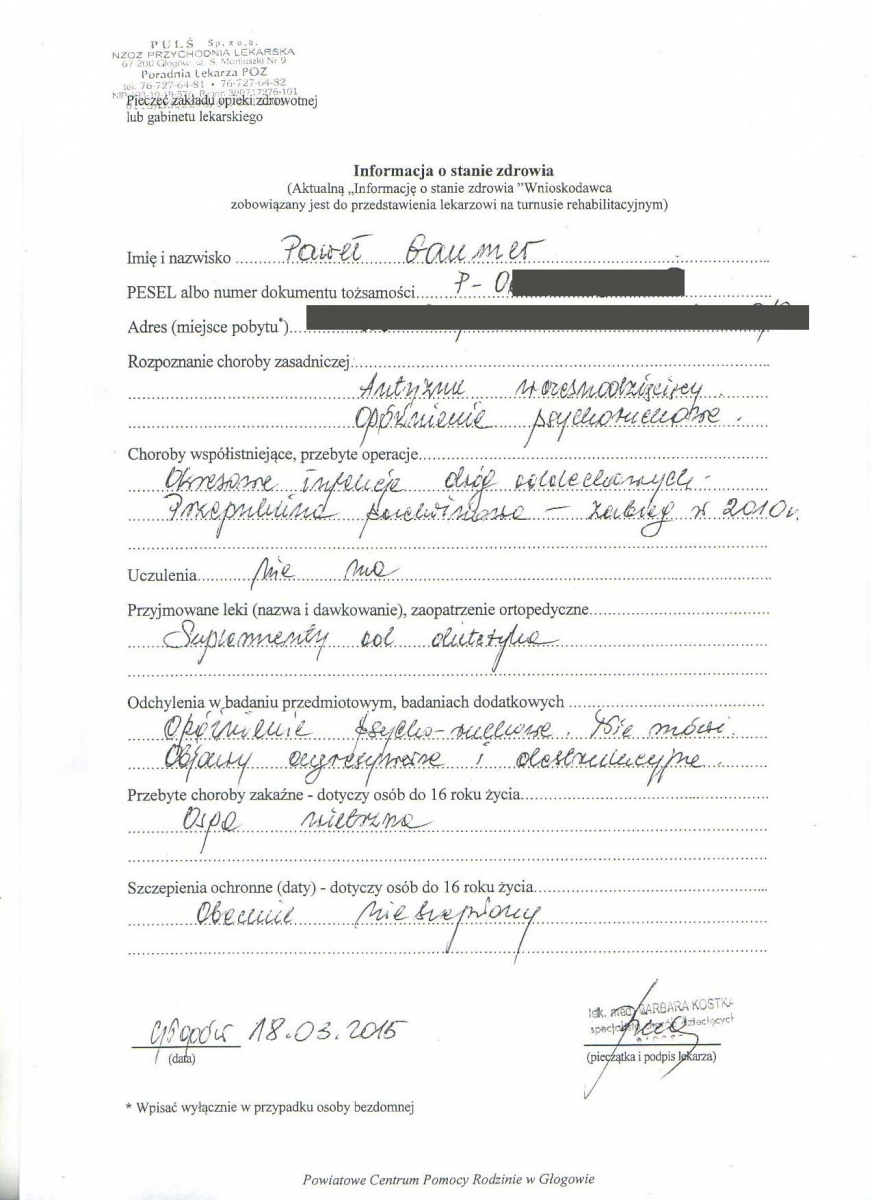 PULŚ Sp. z o.o.
NZOZ PRZYCHODNIA LEKARSKA
67 200 Głogów, ul. S. Moniuszki Nr 9
Poradnia Lekarza POZ
tel. 76-727-64-81 • 76-727-64-82
Pieczęć zakładu opieki zdrowotnej
lub gabinetu lekarskiego
Informacja o stanie zdrowia
(Aktualną „Informację o stanie zdrowia ”Wnioskodawca
zobowiązany jest do przedstawienia lekarzowi na turnusie rehabilitacyjnym)
Imię i nazwisko Paweł
PESEL albo numer dokumentu tożsamości P-0
Adres (miejsce pobytu*)
Rozpoznanie choroby zasadniczej
Autyzm wczesnodziecięcy.
Opóźnienie psychoruchowe.
Choroby współistniejące, przebyte operacje
Okresowe infekcje dróg oddechowych.
Przepuklina pachwinowa - zabieg w 2010r.
Uczulenia nie ma
Przyjmowane leki (nazwa i dawkowanie), zaopatrzenie ortopedyczne
Suplementy od dietetyka
Odchylenia w badaniu przedmiotowym, badaniach dodatkowych
Opóźnienie psycho-ruchowe. Nie mówi.
Objawy agresywne i destrukcyjne.
Przebyte choroby zakaźne - dotyczy osób do 16 roku życia
Ospa wietrzna
Szczepienia ochronne (daty) - dotyczy osób do 16 roku życia
Obecnie nieszczepiony
Głogów 18.03.2015
(data)
lek. med. BARBARA KOSTKA
(pieczątka i podpis lekarza)
* Wpisać wyłącznie w przypadku osoby bezdomnej
Powiatowe Centrum Pomocy Rodzinie w Głogowie